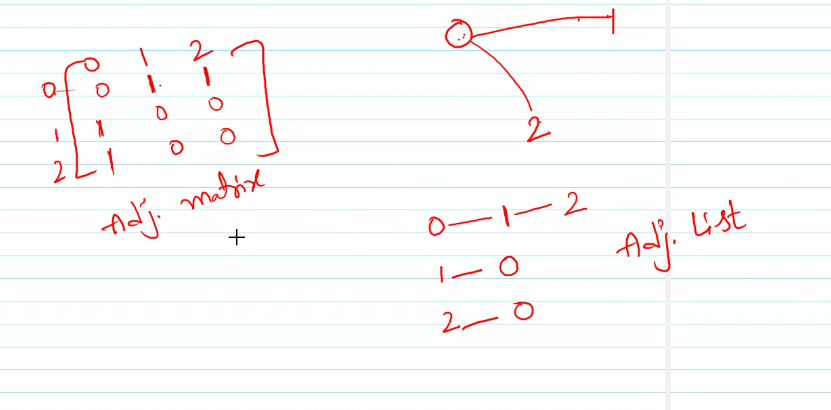 0 1 2
0 0 1 1
1 1 0 0
2 1 0 0
Adj. matrix
0 1
2
0 — 1 — 2
1 — 0
2 — 0
Adj. List